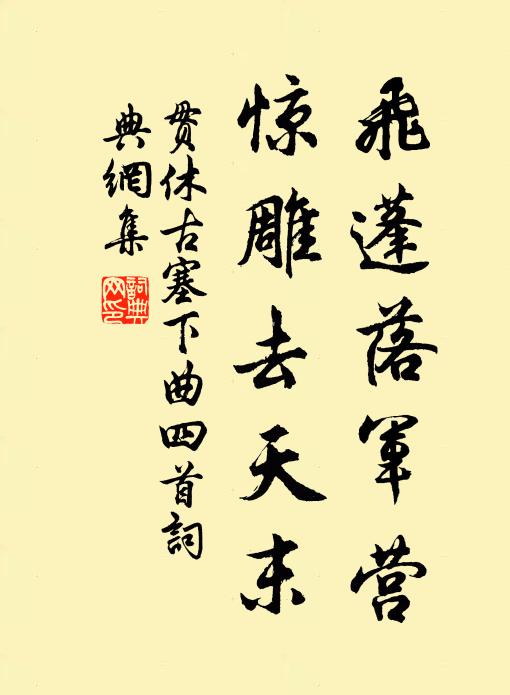 飛蓬落軍营
惊雕去天末
贯休古塞下曲四首詞
典網集
詞典
网印